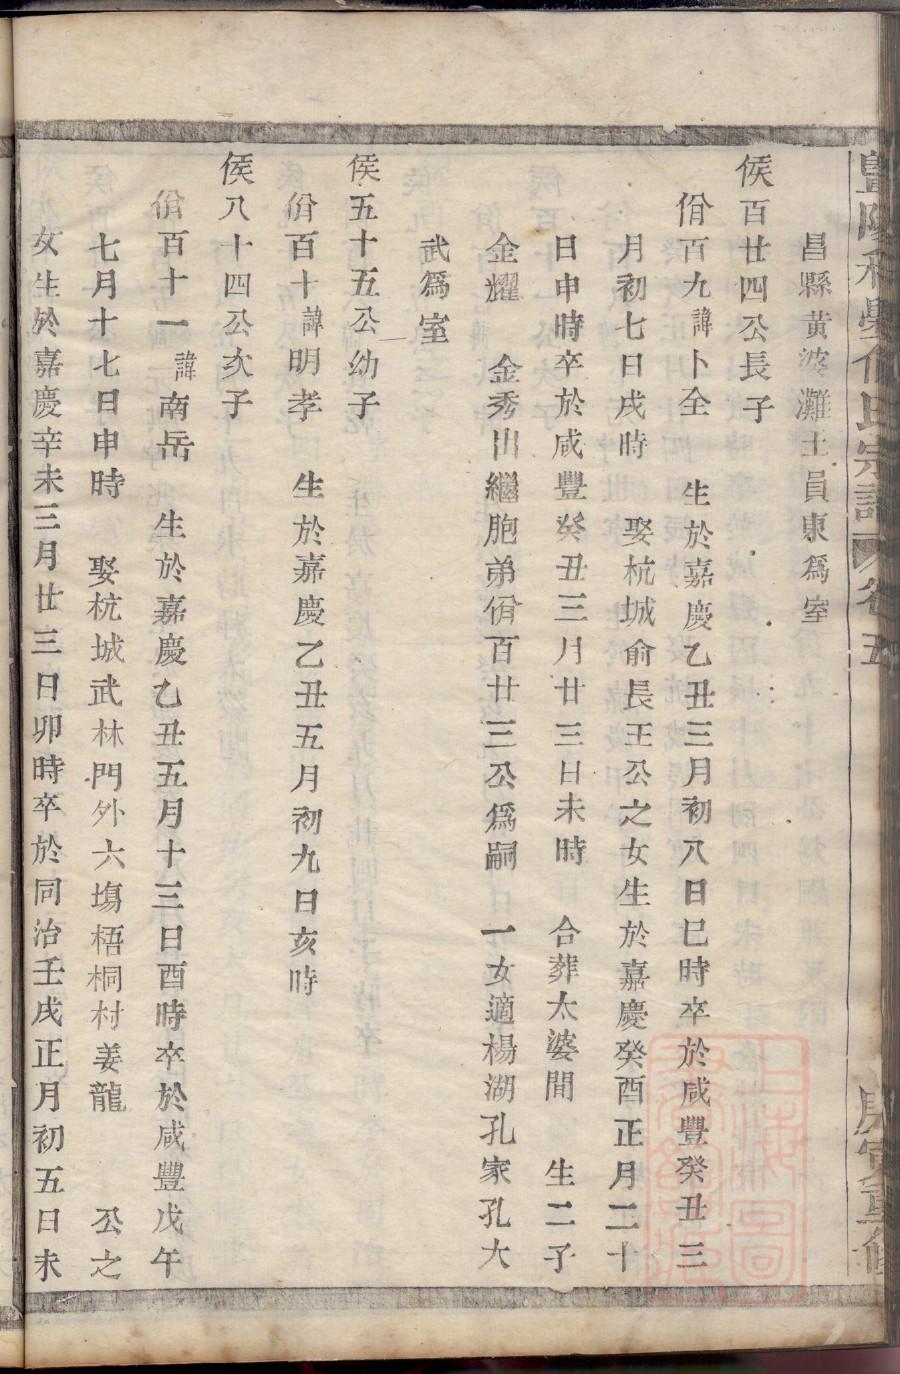 宗譜 卷五
庚寅重修
昌縣黄婆灘王員東為室
侯百廿四公長子
佾百九諱卜全 生於嘉慶乙丑三月初八日巳時卒於咸豐癸丑三
月初七日戌時 娶杭城俞長王公之女生於嘉慶癸酉正月二十
日申時卒於咸豐癸丑三月廿三日未時 合葬太婆間 生二子
金耀 金秀出繼胞弟佾百廿三公為嗣 一女適楊湖孔家孔大
武為室
侯五十五公幼子
佾百十諱明孝 生於嘉慶乙丑五月初九日亥時
侯八十四公次子
佾百十一諱南岳 生於嘉慶乙丑五月十三日酉時卒於咸豐戊午
七月十七日申時 娶杭城武林門外六塲梧桐村姜龍 公之
女生於嘉慶辛未三月廿三日卯時卒於同治壬戌正月初五日未